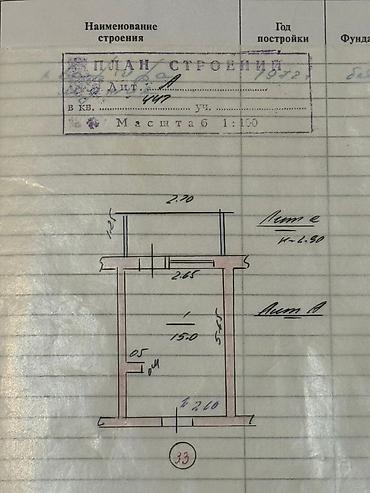 Наименование строения
Год постройки
Фунда
ПЛАН СТРОЕНИЙ
Лит. А
в кв. 447 уч.
Масштаб 1:100
2.70
1.25
Лит а
н-2.50
2.65
1
15.0
5.65
Лит А
05
н 2.60
33